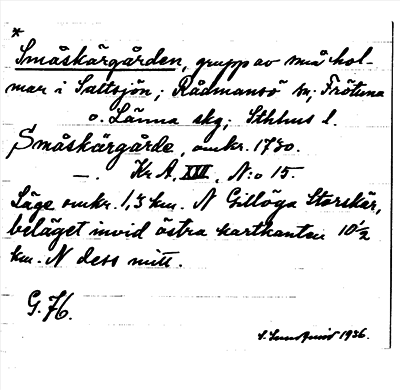 *
Småskärgården, grupp av små hol-
mar i Saltsjön; Rådmansö sn; Frötuna
o. Länna skg; Sthlms l.
Småskärgårde, omkr. 1730.
—. Kr A, XVI, N:o 15
Läge omkr. 1,3 km. N Gillöga Storskär,
beläget invid östra kartkanten 10 1/2
km. N dess mitt.
G. 76.
1936.